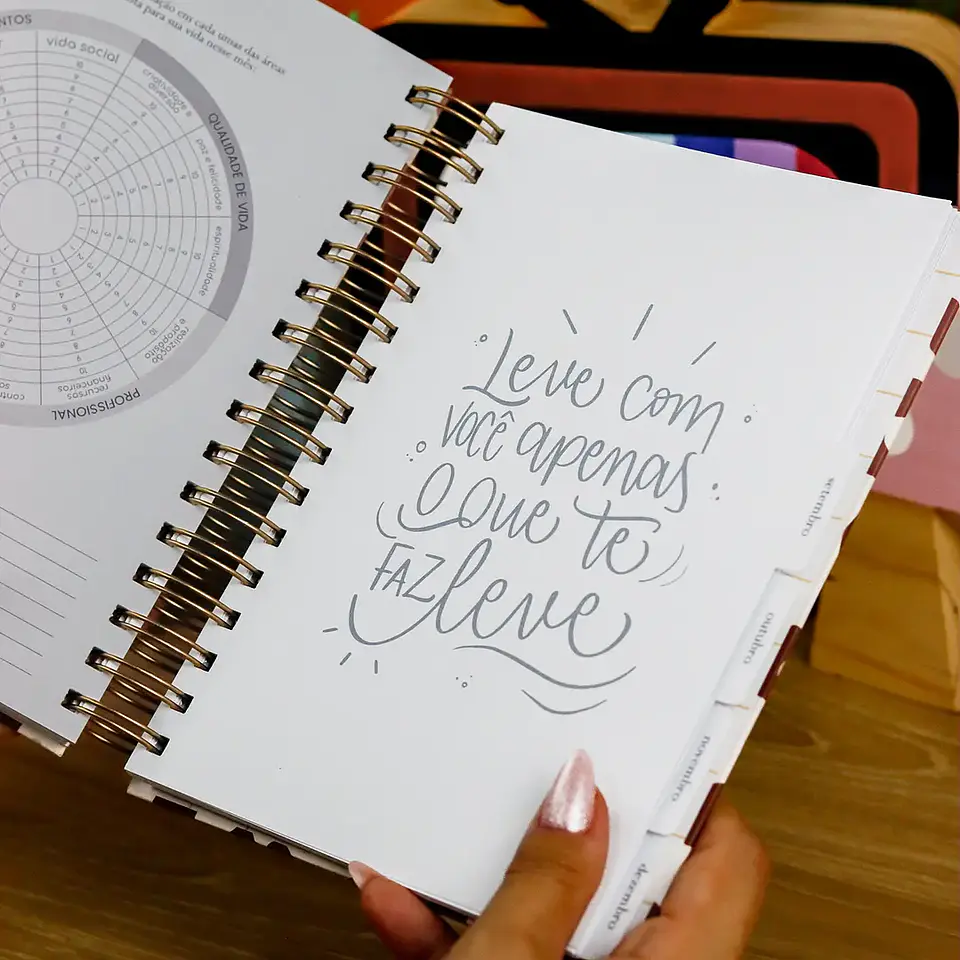 ação em cada umas das áreas
sta para sua vida nesse mês:
NTOS
vida social
criatividade e
diversão
QUALIDADE DE VIDA
paz e felicidade
espiritualidade
realização
e propósito
recursos
financeiros
PROFISSIONAL
Leve com
você apenas
o que te
FAZ leve
setembro
outubro
novembro
dezembro